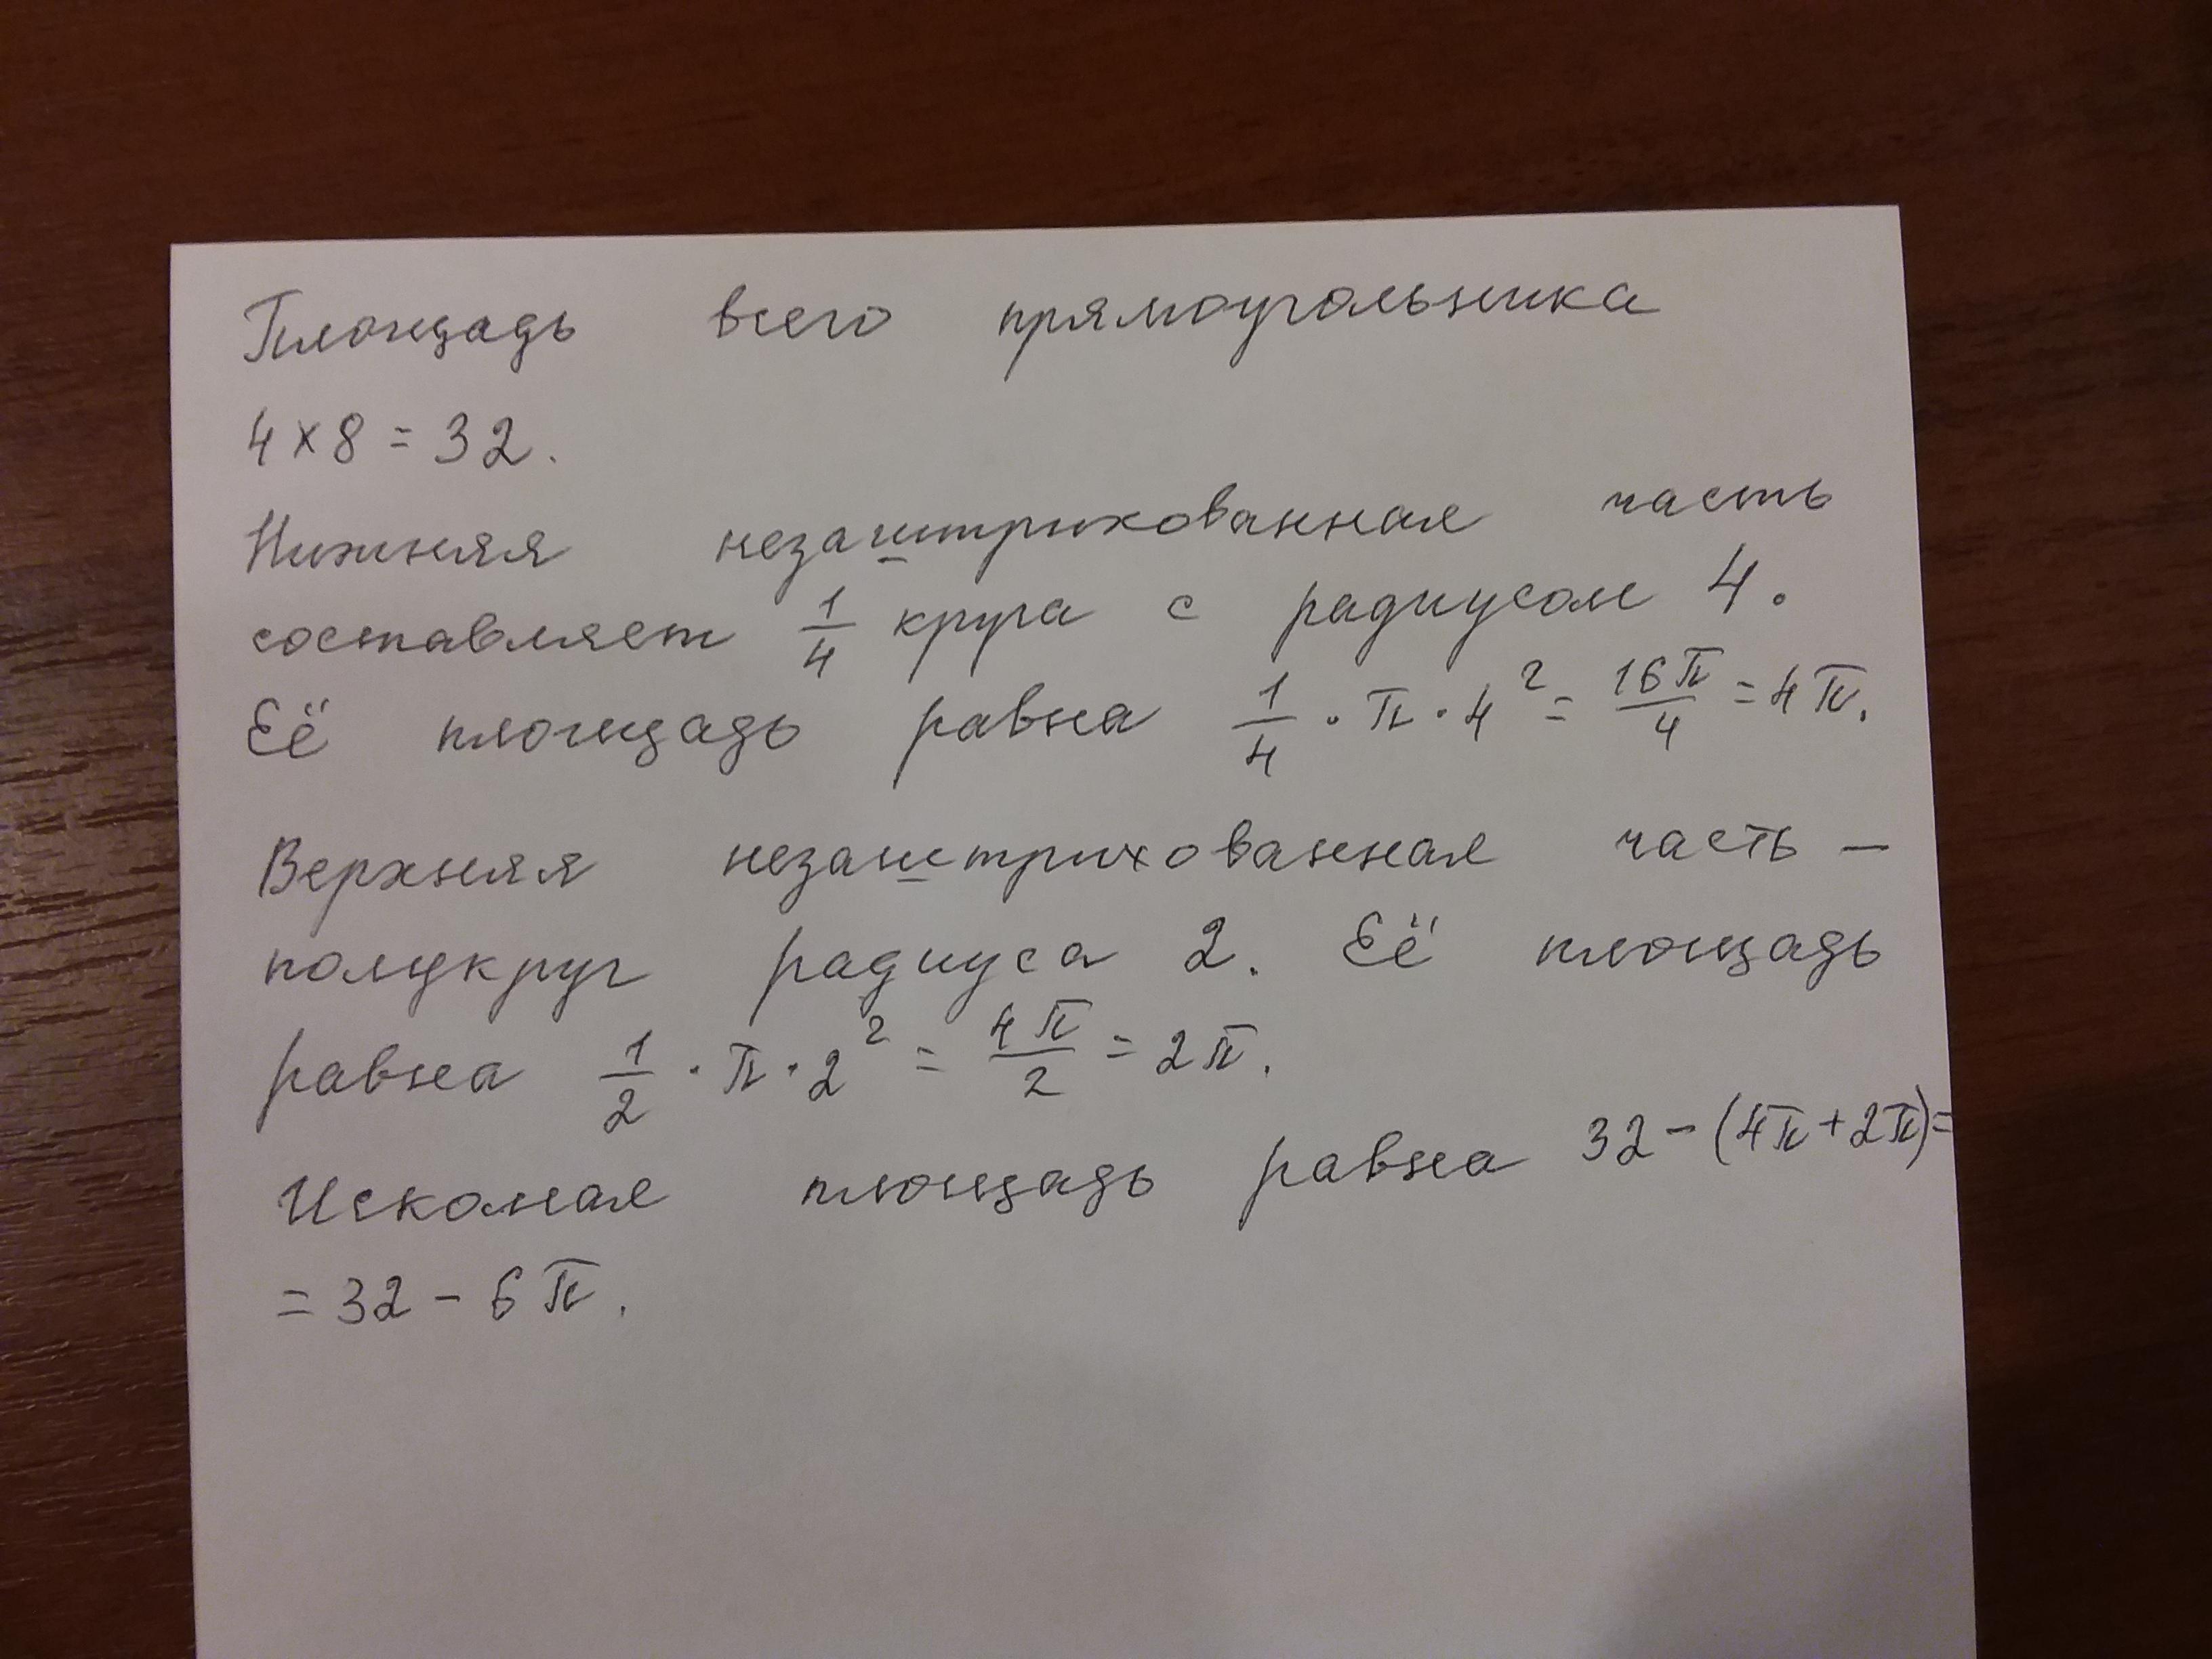 Площадь всего прямоугольника
4 × 8 = 32.
Нижняя незаштрихованная часть
составляет 1/4 круга с радиусом 4.
Её площадь равна 1/4 · π · 4² = 16π/4 = 4π.
Верхняя незаштрихованная часть –
полукруг радиуса 2. Её площадь
равна 1/2 · π · 2² = 4π/2 = 2π.
Искомая площадь равна 32 – (4π + 2π) =
= 32 – 6π.